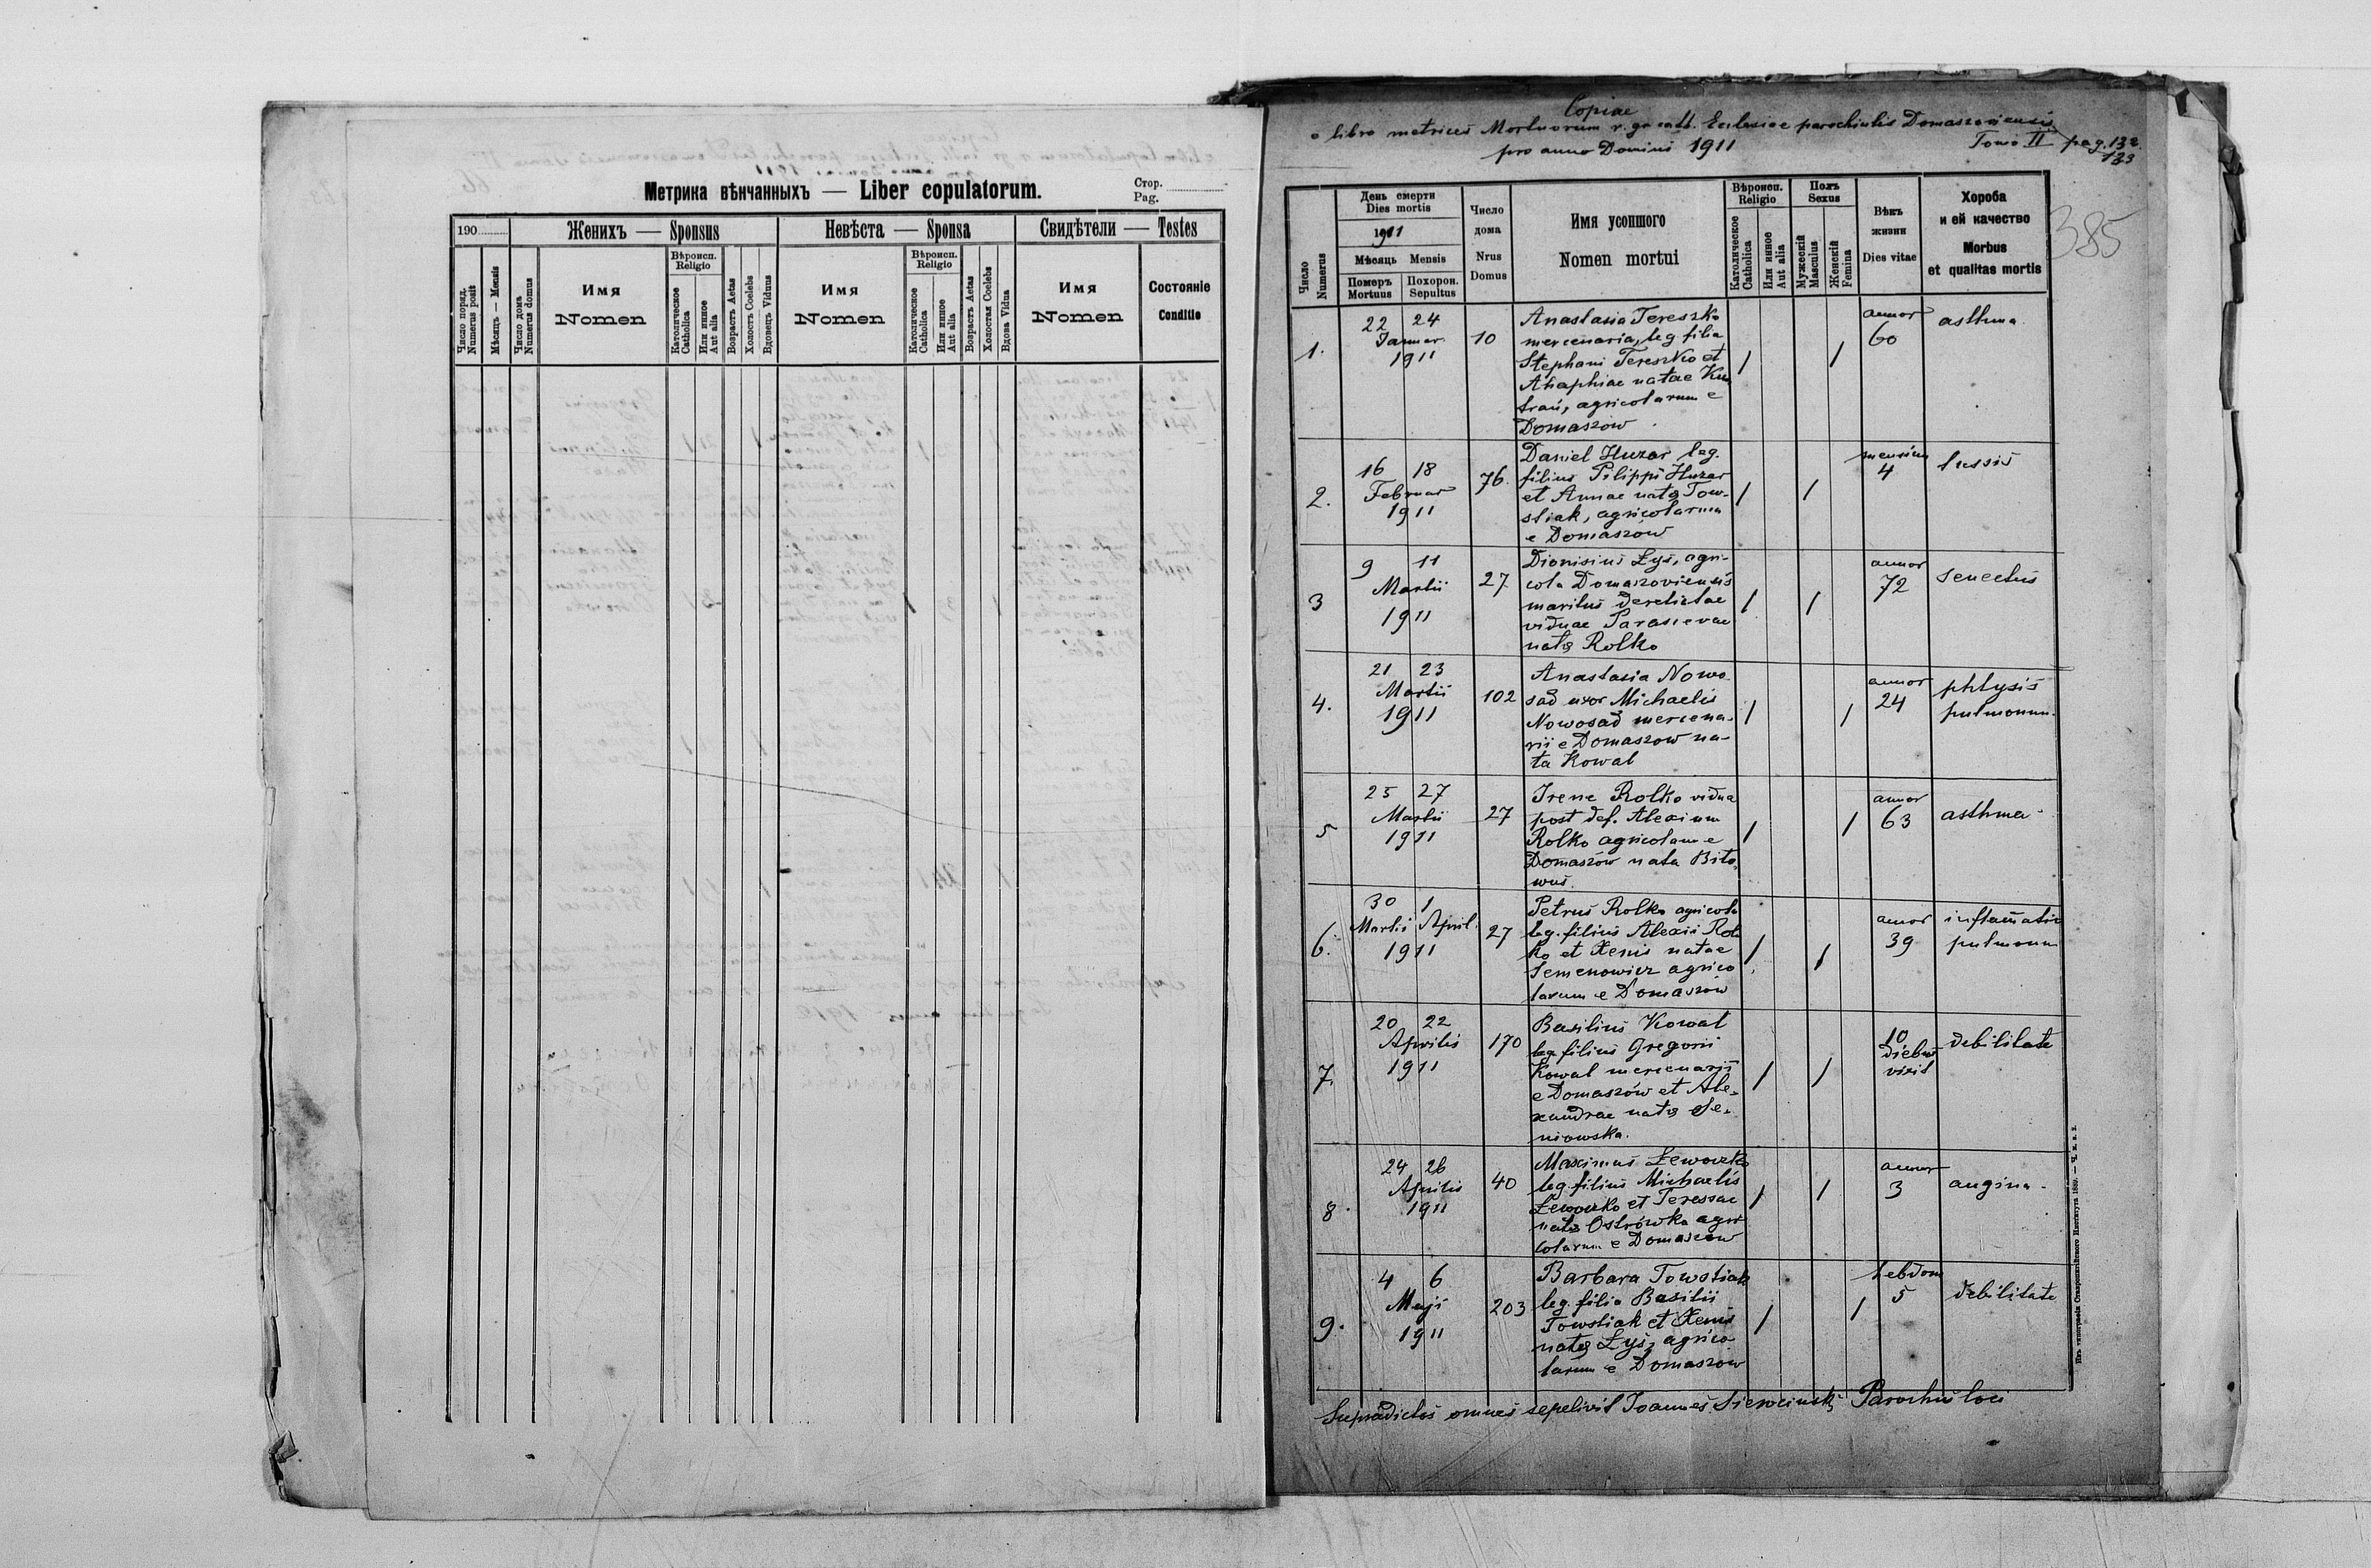 Метрика вѣнчанныхъ — Liber copulatorum.
Стор.
Pag.
190
Женихъ — Sponsus
Невѣста — Sponsa
Свидѣтели — Testes
Число поряд.
Numerus posit
Мѣсяць — Mensis
Число дома
Numerus domus
Имя
Nomen
Вѣроисп.
Religio
Католическое
Catholica
Или инное
Aut alia
Возрастъ Aetas
Холостъ Coelebs
Вдовець Viduus
Имя
Nomen
Вѣроисп.
Religio
Католическое
Catholica
Или инное
Aut alia
Возрастъ Aetas
Холостая Coelebs
Вдова Vidua
Имя
Nomen
Состояніе
Conditio
Copiae
e libro metrices Mortuorum r. gr. cath. Ecclesiae parochialis Domaszoviensis
pro anno Domini 1911
Tomo II pag. 132
133
385
Число
Numerus
День смерти
Dies mortis
1911
Мѣсяць Mensis
Померъ
Mortuus
Похорон.
Sepultus
Число
дома
Nrus
Domus
Имя усопшого
Nomen mortui
Вѣроисп.
Religio
Католическое
Catholica
Или инное
Aut alia
Полъ
Sexus
Мужескій
Masculus
Женскій
Femina
Вѣкъ
жизни
Dies vitae
Хороба
и ей качество
Morbus
et qualitas mortis
1.
22 24
Januar
1911
10
Anastasia Tereszko
mercenaria, leg filia
Stephani Tereszko et
Ahaphiae natae
agricolarum e
Domaszów
/ /
annor
60
asthma
2.
16 18
Februar
1911
76.
Daniel Huzar leg.
filius Pilippi Huzar
et Annae natæ Tow-
stiak, agricolarum
e Domaszów
/ /
mensium
4
tussis
3
9 11
Martii
1911
27.
Dionisius Łyś, agri-
cola Domaszoviensis
maritus derelictae
viduae Parascevae
natæ Rolko
/ /
annor
72
senectus
4.
21 23
Martii
1911
102
Anastasia Nowo-
sad uxor Michaelis
Nowosad mercena-
rii e Domaszow na-
ta Kowal
/ /
annor
24
phtysis
pulmonum.
5
25 27
Martii
1911
27
Irene Rolko vidua
post def. Alexium
Rolko agricolam e
Domaszów nata Biło-
wus.
/ /
annor
63
asthma
6.
30 1
Martii April.
1911
27
Petrus Rolko agricola
leg. filius Alexii Rol-
ko et Xenis natae
Semenowicz agrico
larum e Domaszow
/ /
annor
39
inflamatio
pulmonum
7.
20 22
Aprilis
1911
170
Basilius Kowal
leg filius Gregorii
Kowal mercenarii
e Domaszów et Ale-
xandrae natæ Se-
niowska.
/ /
10
diebus
vixit
debilitate
8.
24 26
Aprilis
1911
40
Maximus Lewoczko
leg. filius Michaelis
Lewoczko et Teressae
natæ Ostrówka agri-
colarum e Domaszow
/ /
annor
3
angina.
9.
4 6
Maji
1911
203
Barbara Towstiak
leg. filia Basilii
Towstiak et Xenis
natæ Łyś, agrico-
larum e Domaszow
/ /
hebdom
5
debilitate
Supradictos omnes sepelivit Joannes Parochus loci